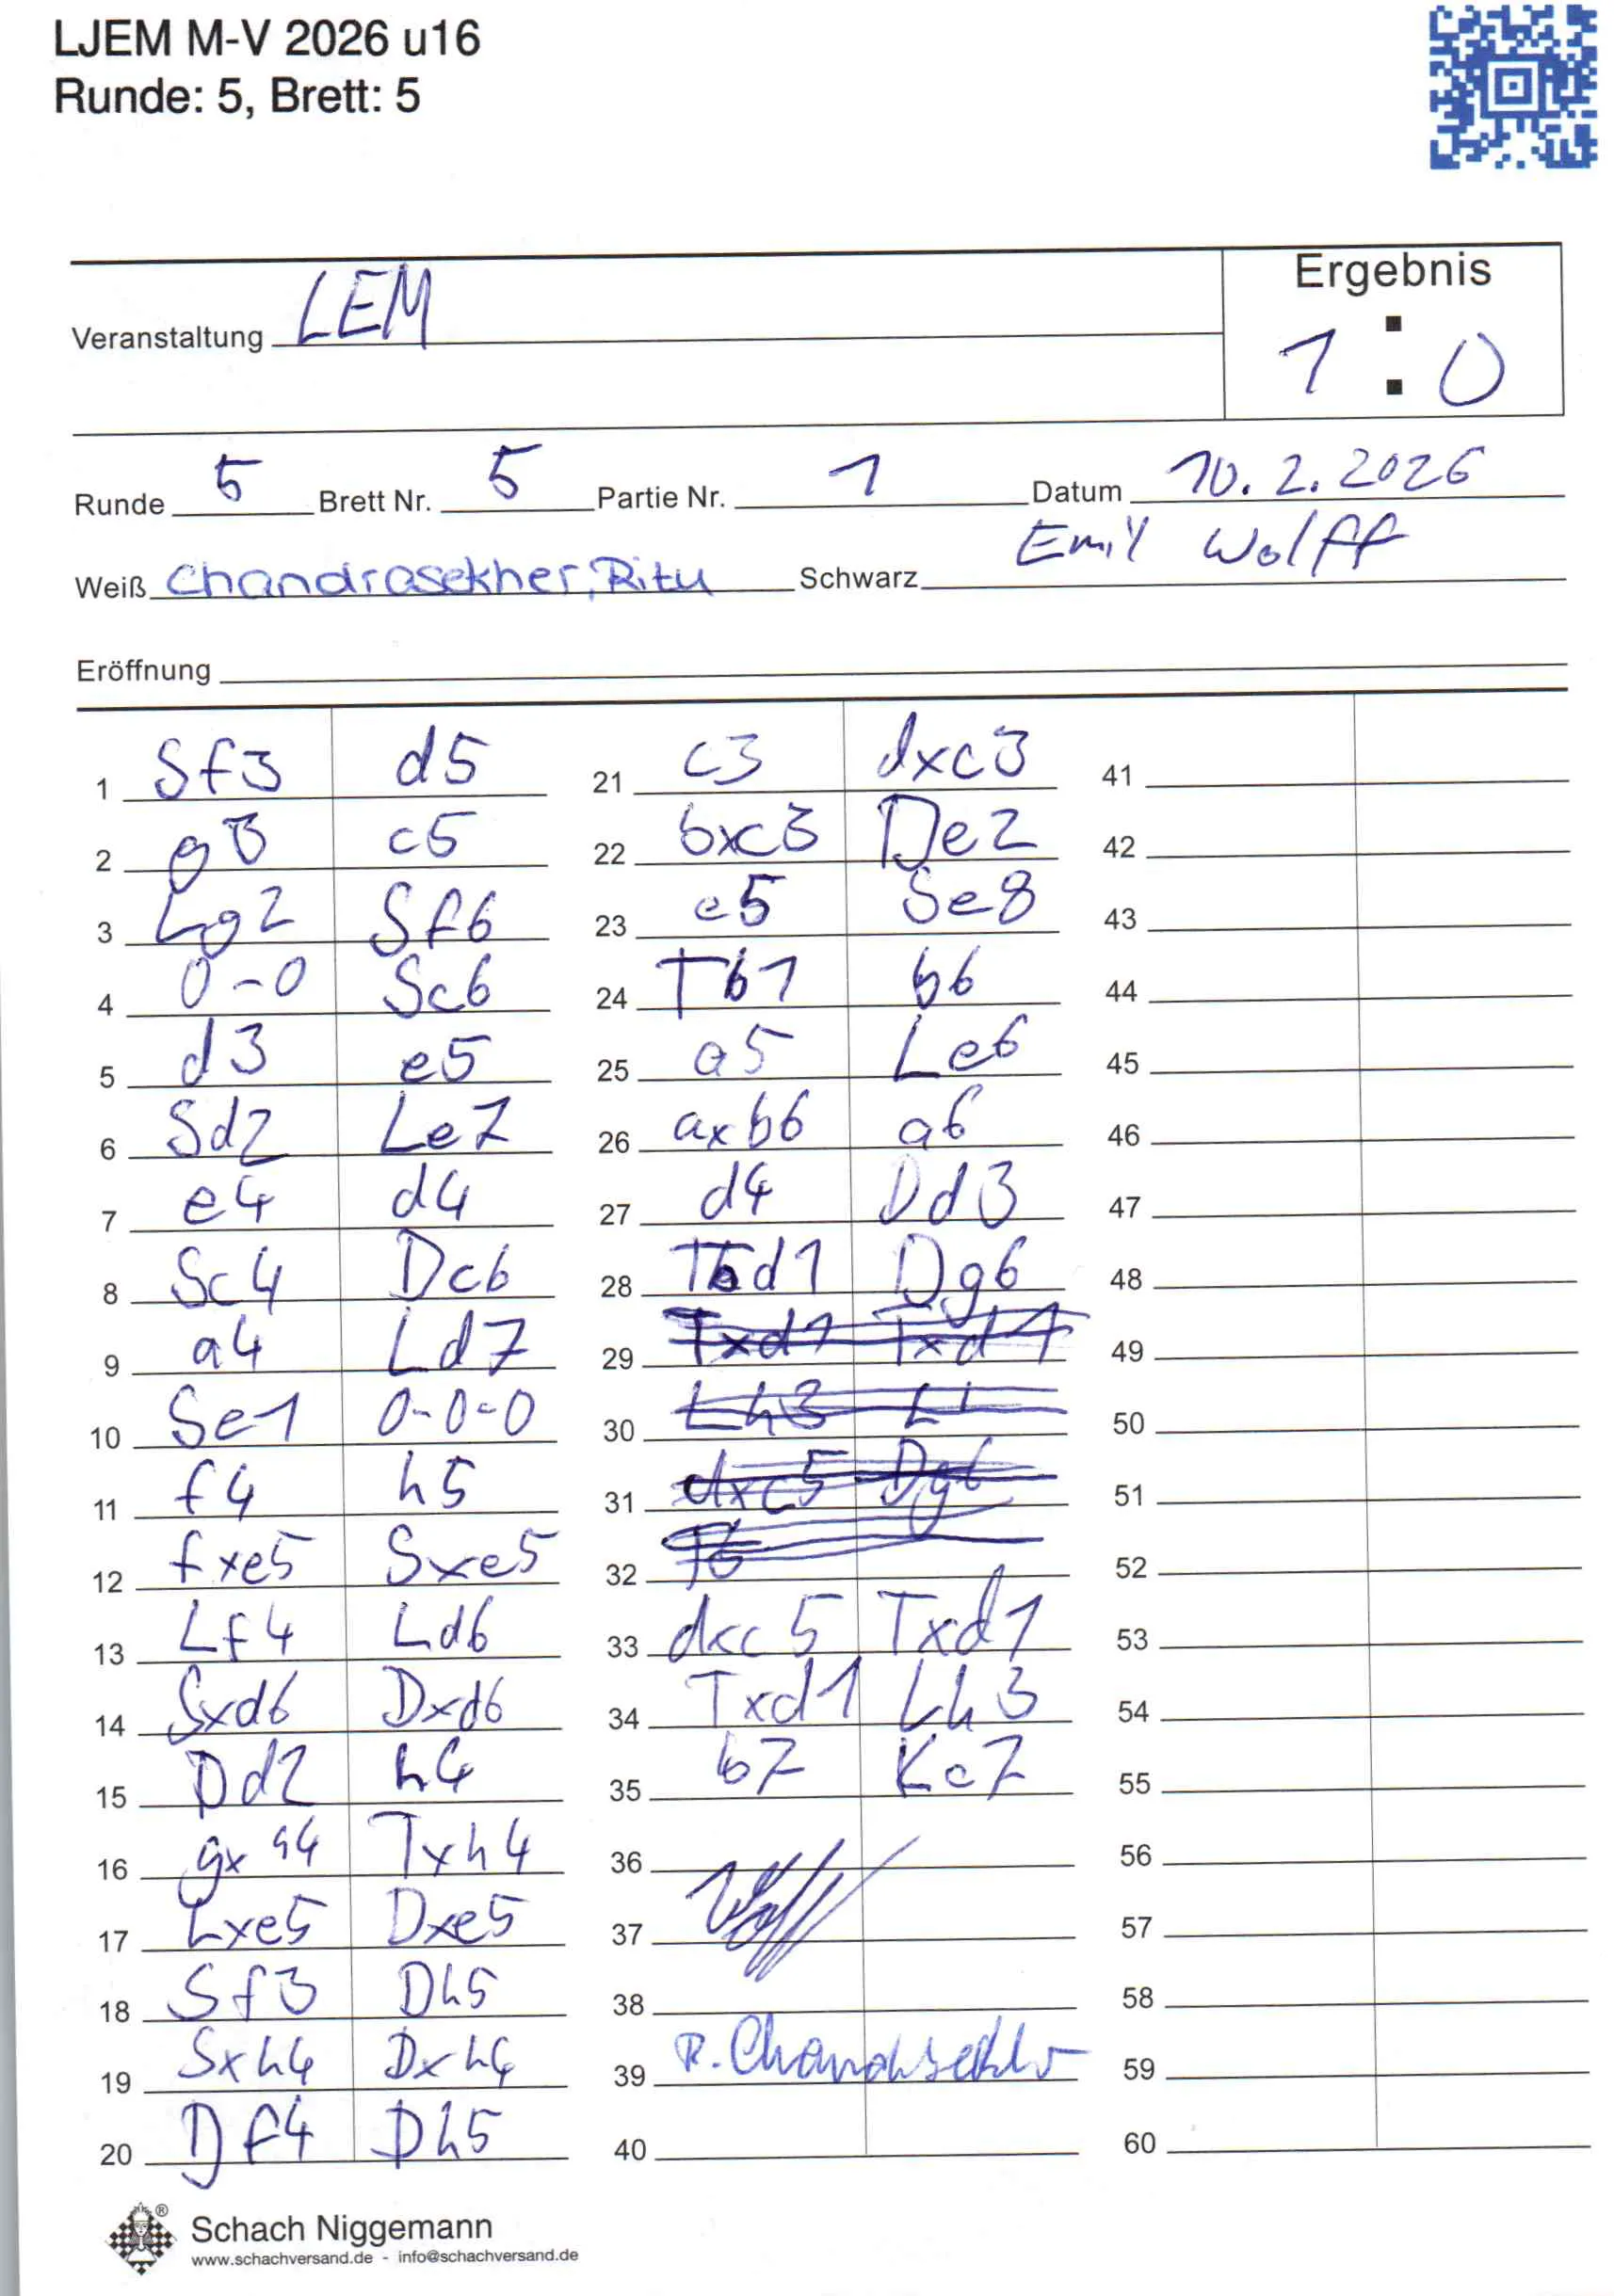 LJEM M-V 2026 u16
Runde: 5, Brett: 5
Veranstaltung LEM
Ergebnis
1 : 0
Runde 5 Brett Nr. 5 Partie Nr. 1 Datum 10.2.2026
Weiß Chandrasekher, Ritu Schwarz Emil Wolff
Eröffnung
1 Sf3 d5
2 g3 c5
3 Lg2 Sf6
4 0-0 Sc6
5 d3 e5
6 Sd2 Le7
7 e4 d4
8 Sc4 Dc6
9 a4 Ld7
10 Se1 0-0-0
11 f4 h5
12 fxe5 Sxe5
13 Lf4 Ld6
14 Sxd6 Dxd6
15 Dd2 h4
16 gxh4 Txh4
17 Lxe5 Dxe5
18 Sf3 Dh5
19 Sxh4 Dxh4
20 Df4 Dh5
21 c3 dxc3
22 bxc3 De2
23 e5 Se8
24 Tb1 b6
25 a5 Le6
26 axb6 a6
27 d4 Dd3
28 Tbd1 Dg6
29 Txd1 Txd1
30 Lh3
31 dxc5 Dg6
32
33 dxc5 Txd1
34 Txd1 Lh3
35 b7 Kc7
36
37 Wolff
38
39 R. Chandrasekher
40
41
42
43
44
45
46
47
48
49
50
51
52
53
54
55
56
57
58
59
60
Schach Niggemann
www.schachversand.de - info@schachversand.de